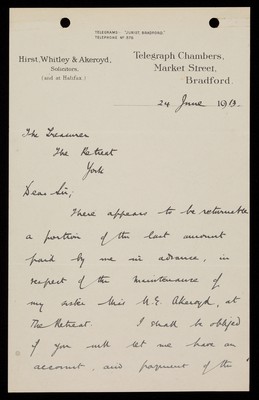 TELEGRAMS: "JURIST, BRADFORD."
TELEPHONE Nº 279.
Hirst, Whitley & Akeroyd,
Solicitors,
(and at Halifax.)
Telegraph Chambers,
Market Street,
Bradford.
24 June 1913.
The Treasurer
The Retreat
York
Dear Sir,
There appears to be returnable
a portion of the last amount
paid by me in advance, in
respect of the maintenance of
my sister Miss M.E. Akeroyd, at
The Retreat. I shall be obliged
if you will let me have an
account, and payment of the